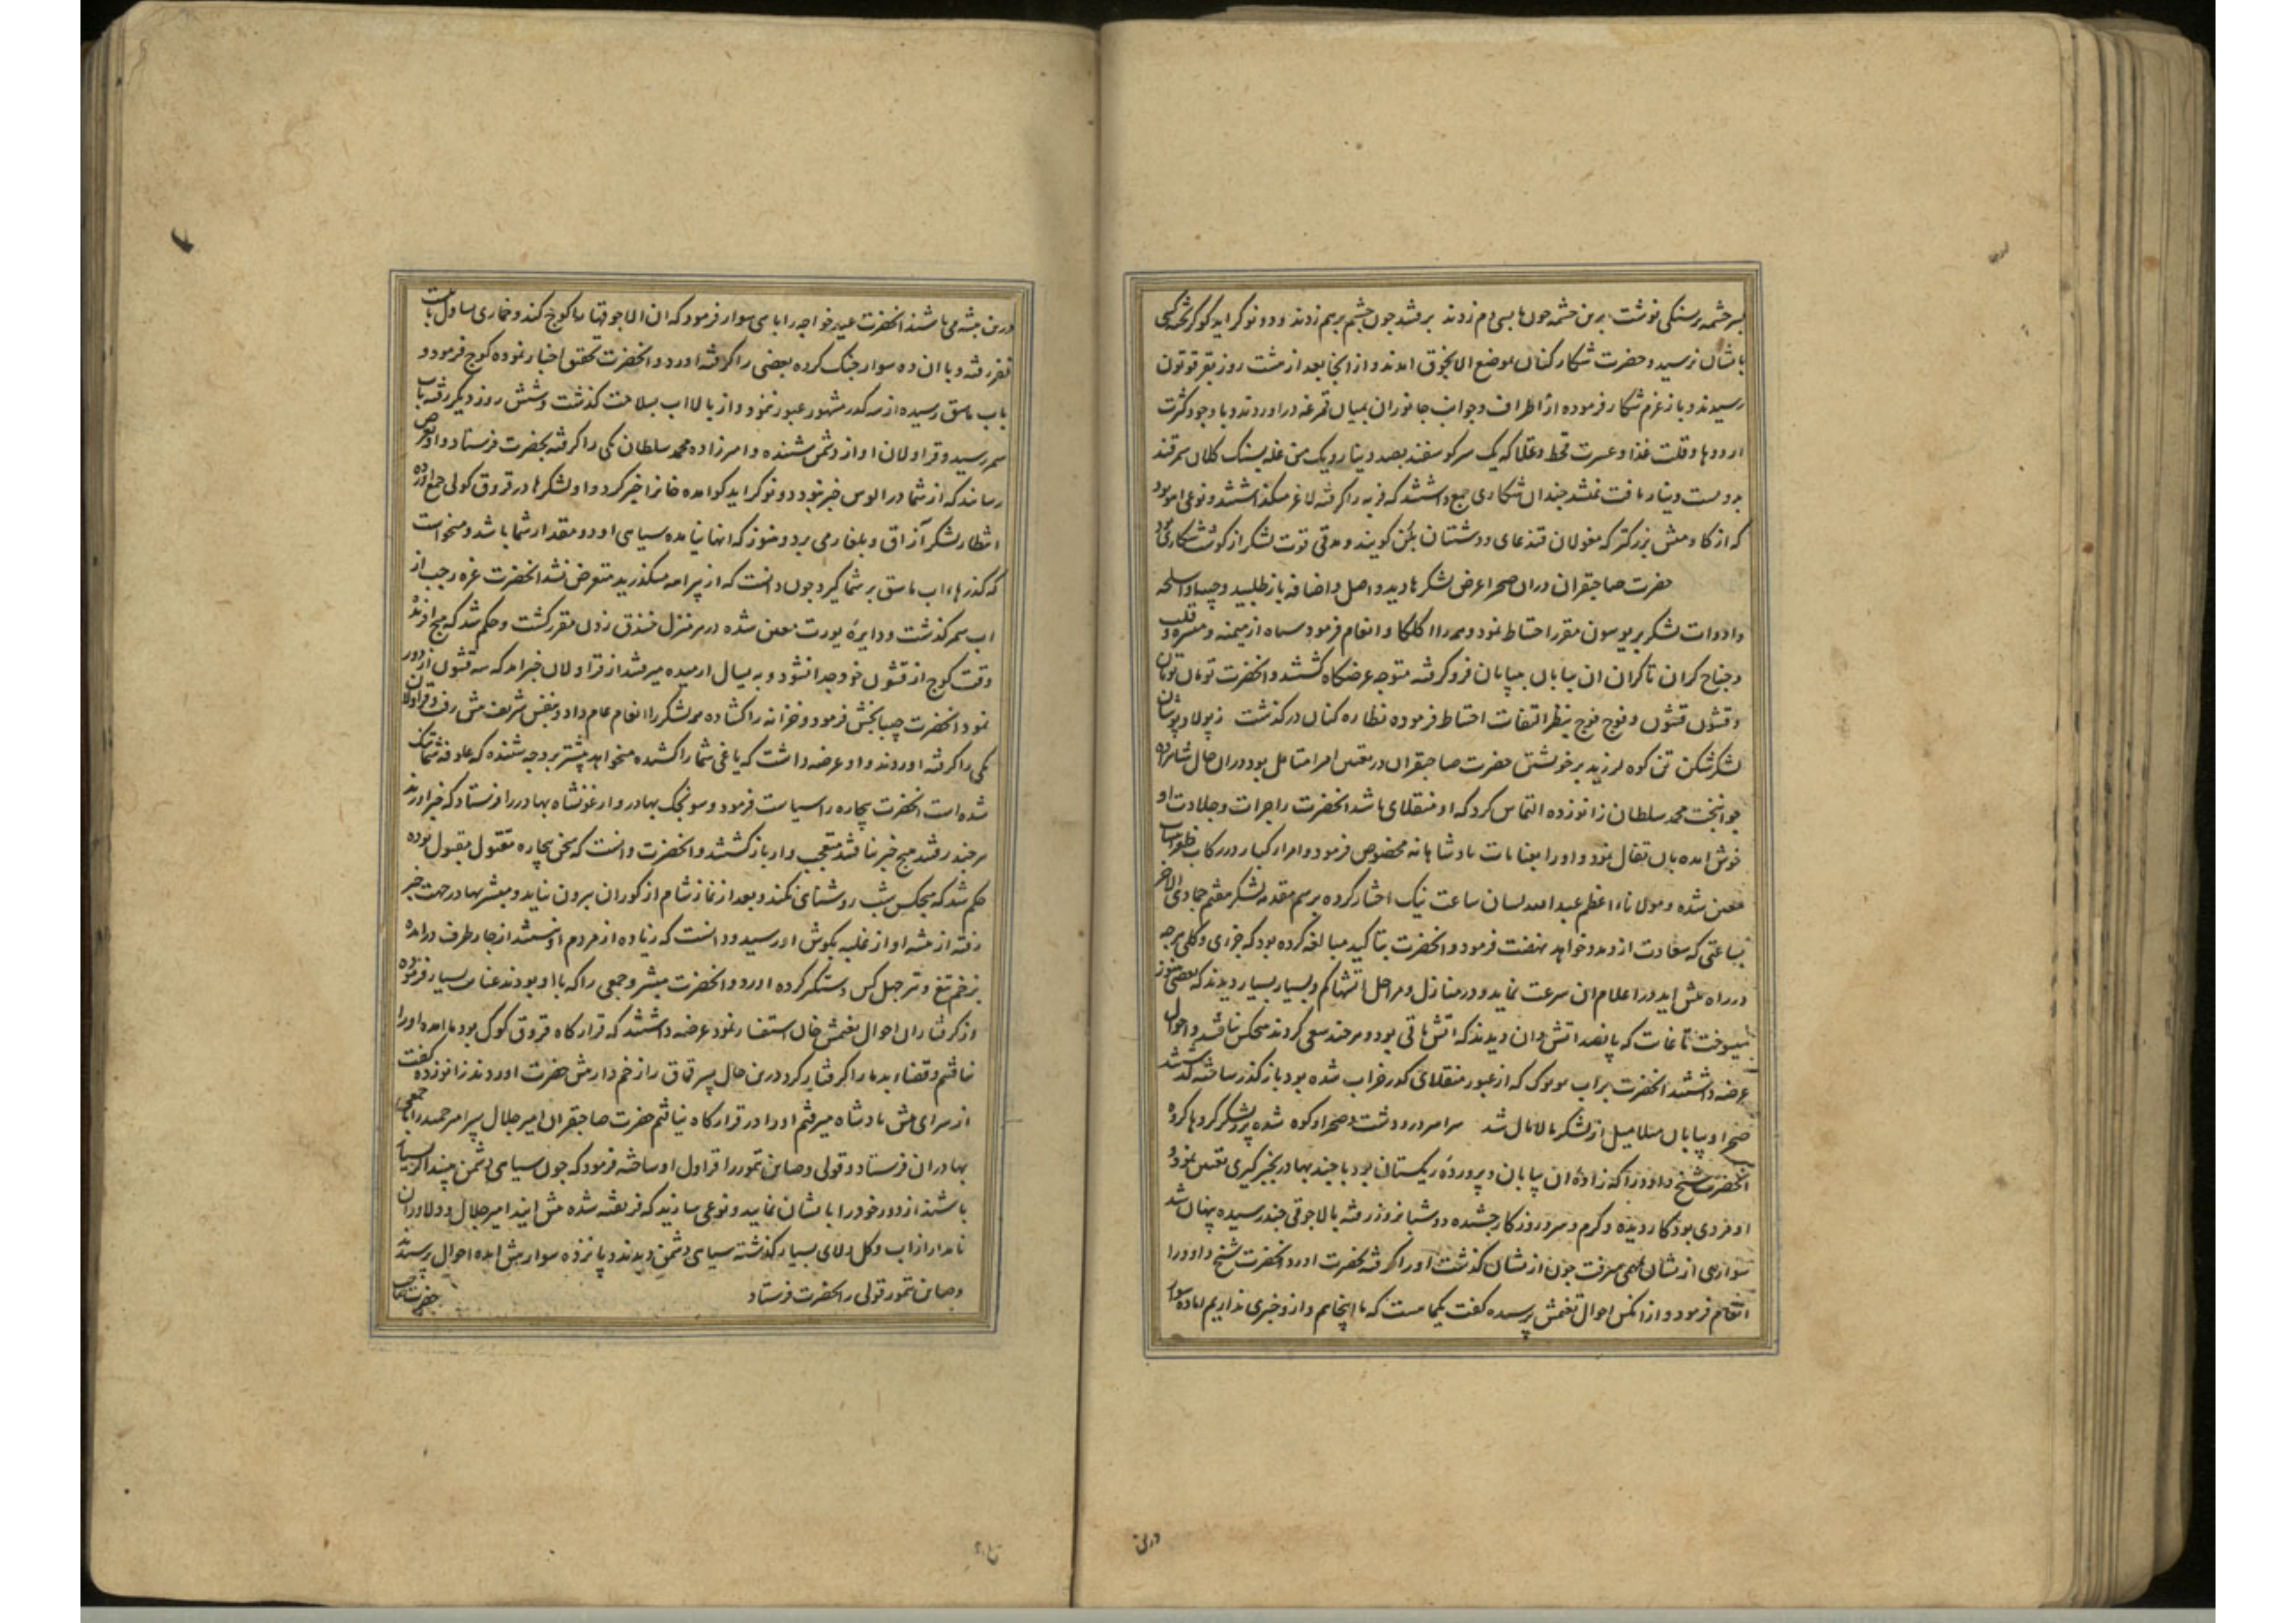 بسر چشمه رسنکی نوشت برین چشمه چون ما بسی دم زدند برفتند چون چشم بر هم زدند و دو نوکر ایدکو کریخته کسی
بایشان نرسید و حضرت شکار کنان بموضع انالجوق امدند و از انجا بعد از هشت روز بقرقوتون
رسیدند و باز عزم شکار فرموده از اطراف و جوانب جانوران بمیان قمرغه دراوردند و با وجود کثرت
اردوها و قلت غذا و عسرت قحط و غلا که یک سر کوسفند بصد دینار و یک من غله بسنک کلان سمرقند
بدویست دینار یافت نمیشد چندان شکاری جمع داشتند که فربه را کرفته لاغر میکذاشتند و نوعی اهو بود
که از کاومیش بزرکتر که مغولان قندغای و دشتیان بلن کویند و مدتی قوت لشکر از کوشت شکاری بود
حضرت صاحبقران دران صحرا عرض لشکرها دید و اصل و اضافه باز طلبید و جیبا و اسلحه
و ادوات لشکر بر یوسون مقرر احتیاط نمود و همه را اکلکا و انعام فرمود سپاه از میمنه و میسره و قلب
و جناح کران تا کران ان بیابان بی پایان فرو کرفته متوجه عرضکاه کشتند و انحضرت تومان تومان
و قشون قشون و فوج فوج بنظر التفات احتیاط فرموده نظاره کنان درکذشت ز پولاد پوشان
لشکر شکن تن کوه لرزید بر خویشتن حضرت صاحبقران در تعین امرا متامل بود دران حال شاهزاده
جوانبخت محمد سلطان زانو زده التماس کرد که او منقلای باشد انحضرت را جرات و جلادت او
خوش امده بان تفال نمود و او را بعنایات پادشاهانه مخصوص فرمود و امراء کبار در رکاب ظفر انتساب
معین شده و مولاناء اعظم عبدالله لسان ساعت نیک اختیار کرده برسم مقدمه لشکر هفتم جمادی الاخر
بساعتی که سعادت ازو مدد خواهد نهضت فرمود و انحضرت بتاکید مبالغه کرده بود که جزوی و کلی هرچه
در راه پیش اید در اعلام ان سرعت نماید و در منازل و مراحل بسیار بسیار دیدند که بعضی هنوز
میسوخت تا غایت که پانصد اتش دان دیدند که اتش باقی بود و هرچند سعی کردند هیچکس نیافتند و احوال
عرضه داشتند انحضرت براب توبول که از عبور منقلای کدر خراب شده بود باز کذر ساخته کذشتند
صحرا و بیابان میلا میل از لشکر مالامال شد سراسر در و دشت و صحرا و کوه شده پر ز لشکر کروها کروه
انحضرت شیخ داود را که زاده ان بیابان و پرورده ریکستان بود با چند بهادر بخبرکیری تعین نمود و
او مردی بود کار دیده و کرم و سرد روزکار چشیده دو شبانروز رفته بالاجوقی چند رسیده پنهان شد
سواری از ایشان بمهمی میرفت چون از نشان کذشت او را کرفته بحضرت اورد و انحضرت شیخ داود را
انعام فرمود و از انکس احوال تغتمش پرسیده کفت یکماهست که ما اینجاییم و ازو خبری نداریم اما ده سوار
درین
درین بیشه می باشند انحضرت عید خواجه را با سی سوار فرمود که ان الاجوقها را کوچ کند و خماری یساول با بیست
نفر رفته و با ان ده سوار جنک کرده بعضی را کرفته اورد و انحضرت تحقیق اخبار نموده کوچ فرمود و
باب یاییق رسیده از سه کدر مشهور عبور ننمود و از بالا اب بسلامت کذشت و شش روز دیکر رفته باب
سمر رسید و قراولان اواز دشمن شنیده و امیرزاده محمد سلطان یکی را کرفته بحضرت فرستاد و او بعرض
رسانید که از شما در الوس خبر نبود دو نوکر ایدکو امده خانرا خبر کرد و او لشکرها در قروق کولی جمع اورده
انتظار لشکر آزاق و بلغار می برد و هنوز که انها نیامده سیاهی او دو مقدار شما باشد و میخواست
که کذرهاء اب یاییق بر شما کیرد چون دانست که از پیرامه میکذرید متعرض نشد انحضرت غره رجب از
اب سمر کذشت و دایره یورت معین شده در هر منزل خندق زدن مقرر کشت و حکم شد که هیچ افریده
وقت کوچ از قشون خود جدا نشود و به یسال ارمیده میرفتند از قراولان خبر امد که سه قشون از دور
نمود انحضرت جیبا بخش فرمود و خزانه را کشاده همه لشکر را انعام عام داد و بنفس شریف پیش رفت و قراولان
یکی را کرفته اوردند و او عرضه داشت که یاغی شما را کشیده میخواهد پیشتر برد چه شنیده که علوفه شما تنک
شده است انحضرت بیچاره را سیاست فرمود و سونجک بهادر و ارغونشاه بهادر را فرستاد که خبر اورند
هرچند رفتند هیچ خبر نیافتند متعجب وار باز کشتند و انحضرت دانست که سخن بیچاره مقتول مقبول بوده
حکم شد که هیچکس شب روشنای نکند و بعد از نماز شام از کوران بیرون نیاید و مبشر بهادر جهت خبر
رفته از بیشه اواز غلبه بکوش او رسید و دانست که زیاده از مردم او نیستند از چار طرف درامده
بزخم تیغ و تیر چهل کس دستکیر کرده اورد و انحضرت مبشر و جمعی را که با او بودند عنایت بسیار فرموده
از کرفتاران احوال تغتمش خان استفسار نمود عرضه داشتند که قرارکاه قروق کولک بود ما امده او را
نیافتیم و قضاء بد ما را کرفتار کرد درین حال پسر قماق را زخم دار پیش حضرت اوردند زانو زده کفت
از سرای پیش پادشاه میرفتم او را در قرارکاه نیافتم حضرت صاحبقران امیر جلال پسر امیر حمید را با جمعی
بهادران فرستاد و قولی و صاین تمور را قراول او ساخته فرمود که چون سیاهی دشمن ببیند اکر بسیار
باشند از دور خود را بایشان نمایید و نوعی سازید که فریفته شده پیش ایند امیر جلال و دلاوران
نامدار از اب و کل و لای بسیار کذشته سیاهی دشمن دیدند و پانزده سوار پیش امده احوال پرسیدند
و صاین تمور قولی را بحضرت فرستاد